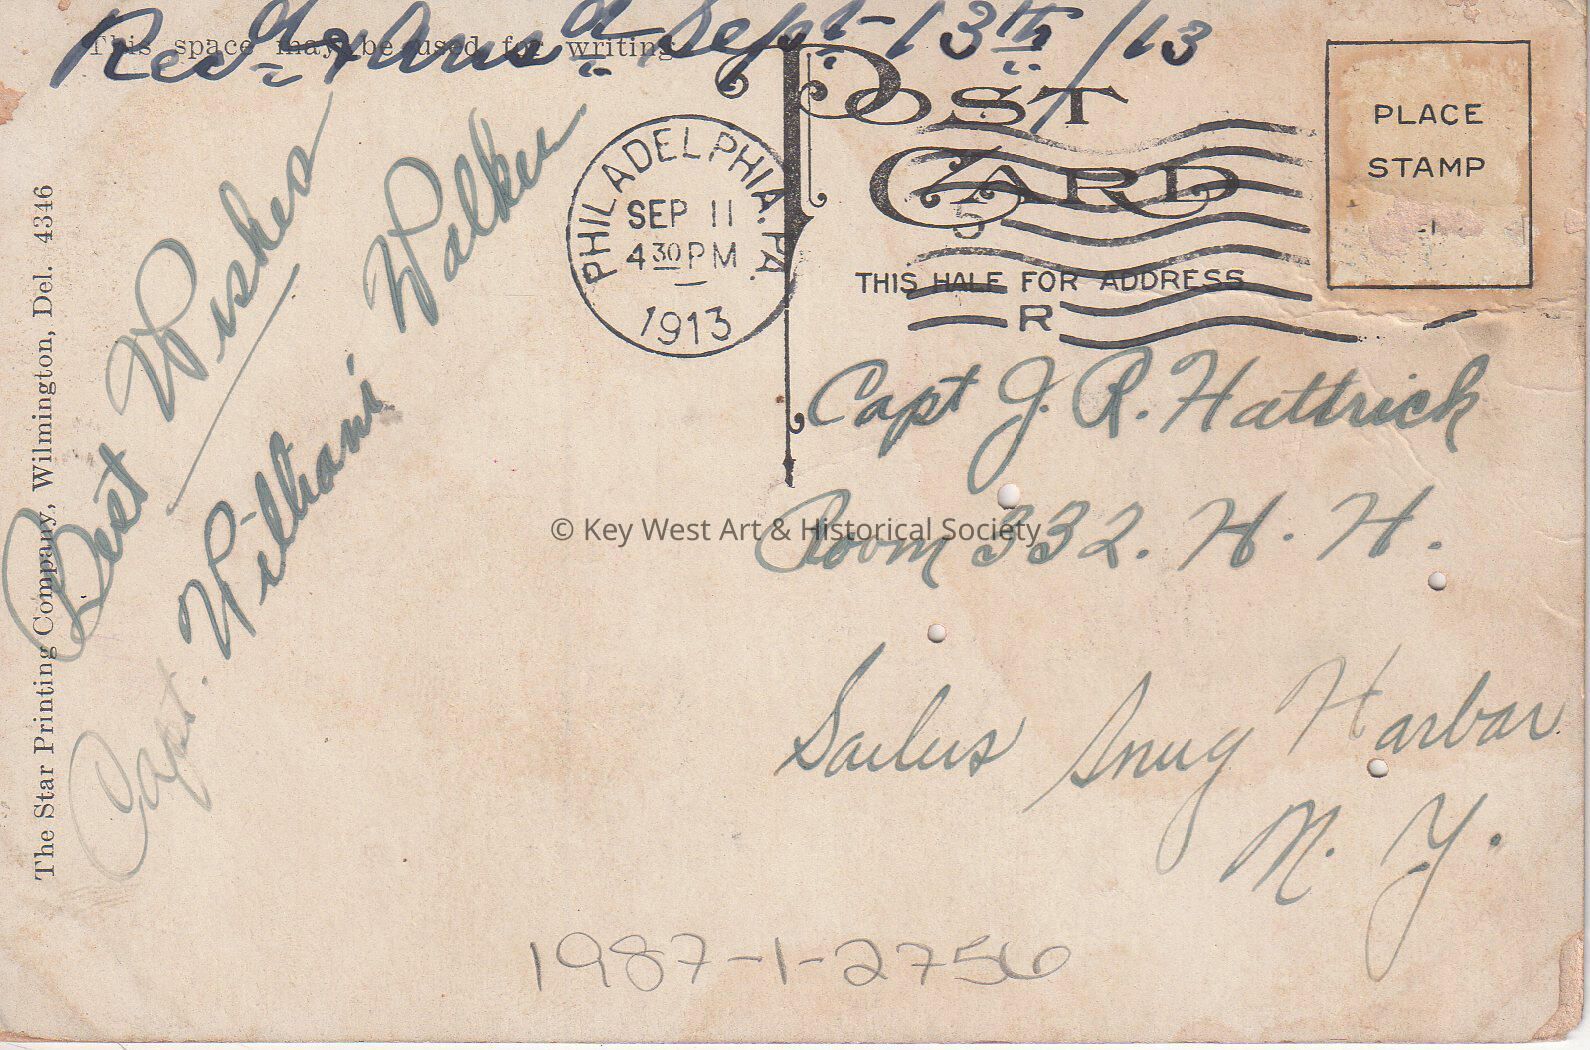 Recd & Ansd Sept-13th/13
This space may be used for writing
POST CARD
THIS HALF FOR ADDRESS
PLACE
STAMP
PHILADELPHIA, PA.
SEP 11
4 30 PM
1913
5
R
Best Wishes
Capt. William Walker
Capt J. R. Hattrick
Room 332. H. H.
Sailers Snug Harbor
N. Y.
The Star Printing Company, Wilmington, Del. 4346
© Key West Art & Historical Society
1987-1-2756